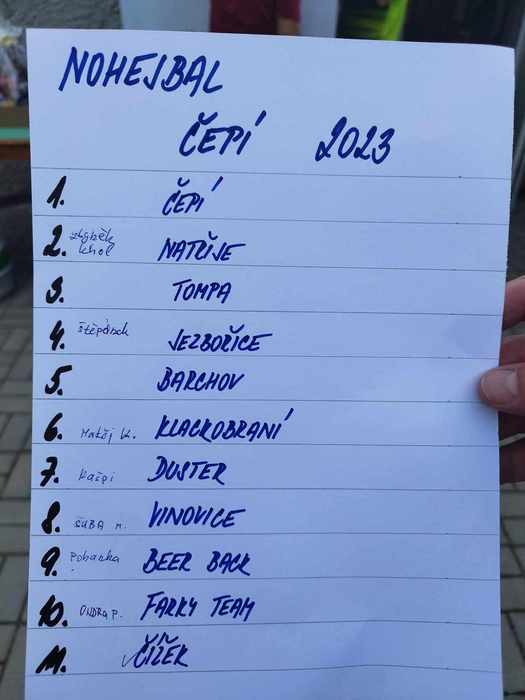 NOHEJBAL
ČEPÍ 2023
1. ČEPÍ
2. zbyněk khol NATŘIJE
3. TOMPA
4. JEZBOŘICE
5. BARCHOV
6. Matěj K. KLACKOBRANÍ
7. Kašpi DUSTER
8. ŠUBA M. VINOVICE
9. Pohanka BEER BACK
10. ONDRA P. FARKY TEAM
11. ČÍŽEK